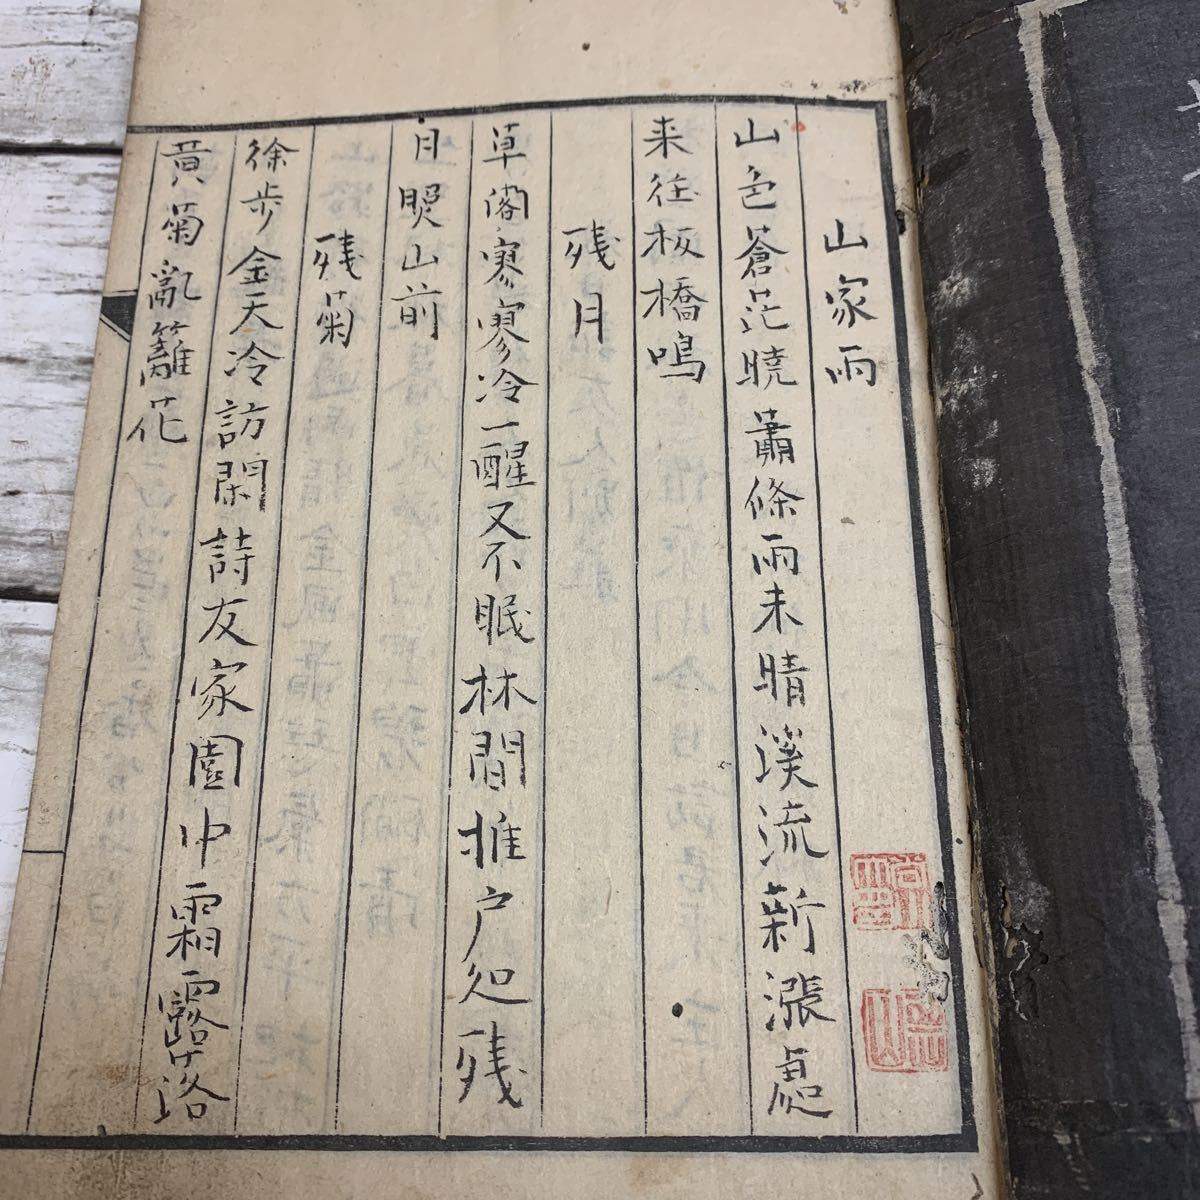 山家雨
山色蒼茫暁蕭條雨未晴溪流新漲處
来往板橋鳴
残月
草閣寒寥冷一醒又不眠林間推户処残
月照山前
残菊
徐步金天冷訪閑詩友家園中霜露落
黄菊亂籬花